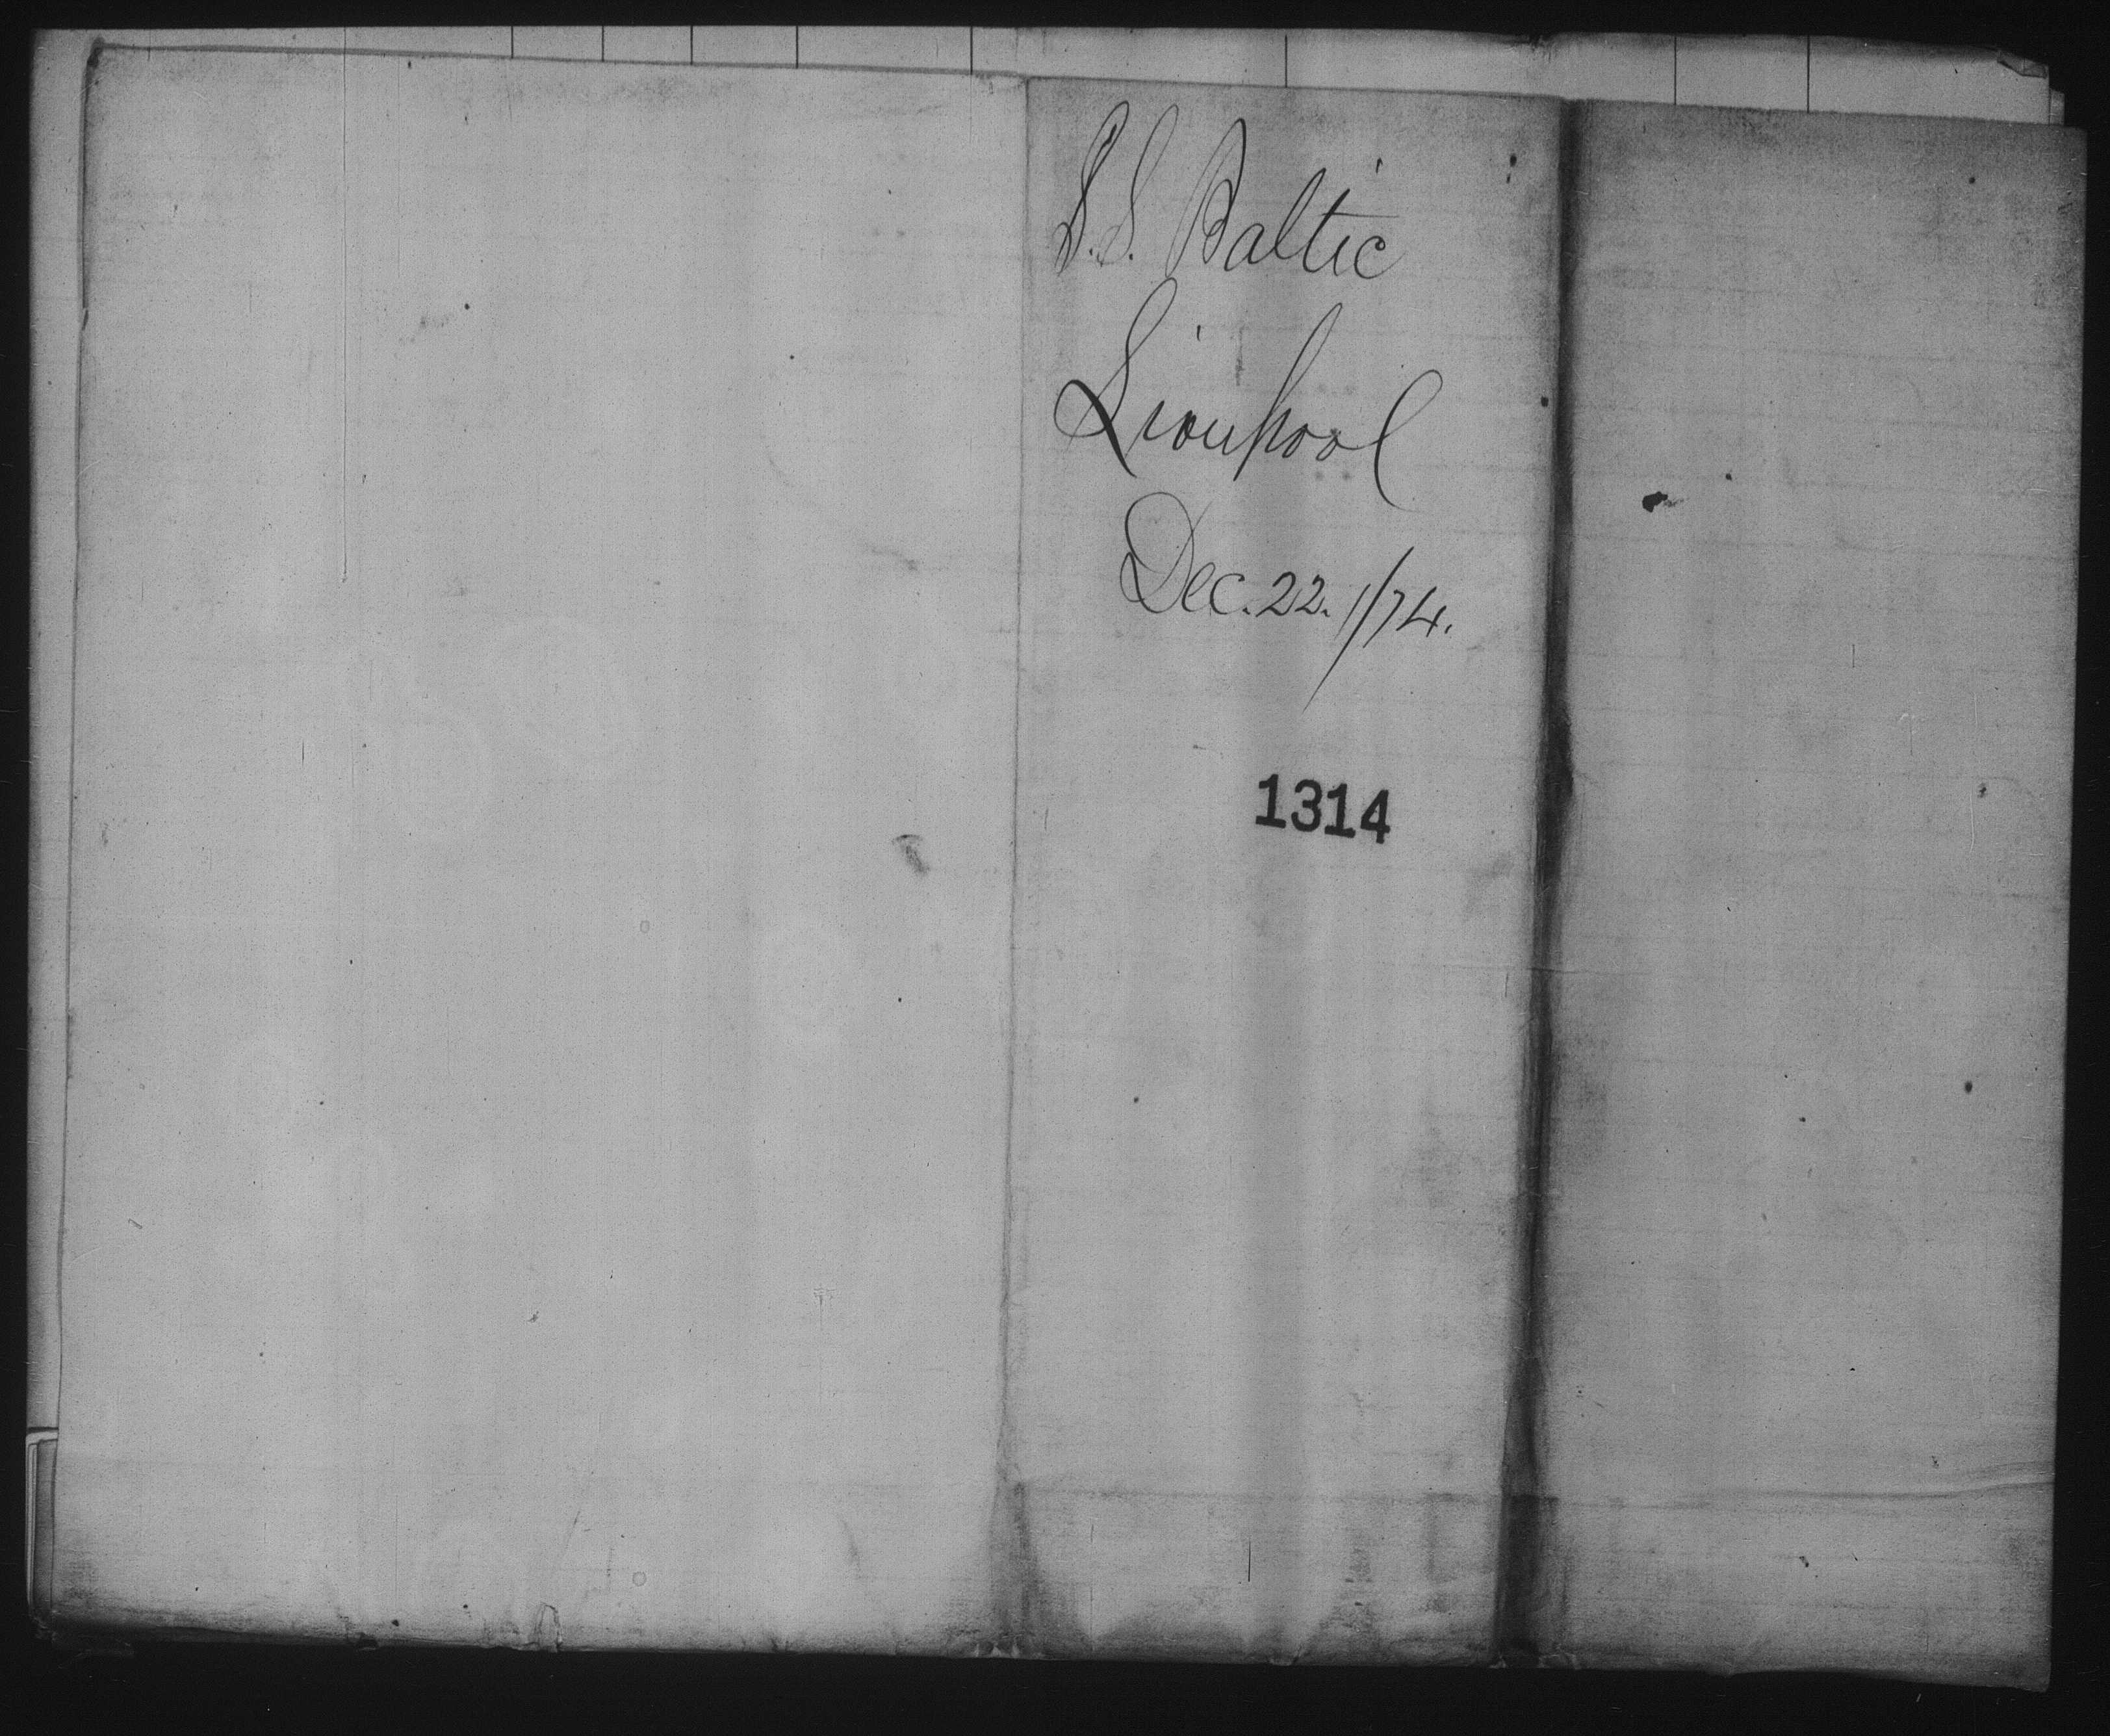 S.S. Baltic
Liverpool
Dec. 22. 1/74.
1314